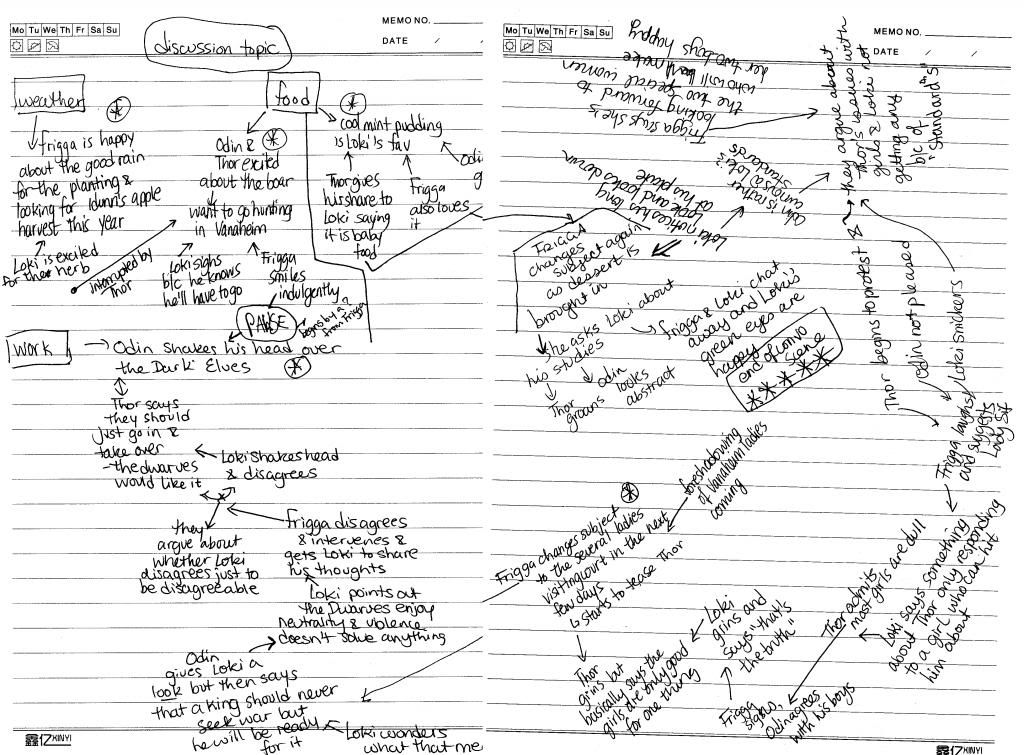 Mo Tu We Th Fr Sa Su
MEMO NO.
DATE / /
discussion topic
weather
Frigga is happy
about the good rain
for the planting &
looking for Idunn's apple
harvest this year
Loki is excited
for the herb
interrupted by
Thor
food
Odin &
Thor excited
about the boar
want to go hunting
in Vanaheim
Loki sighs
b/c he knows
he'll have to go
Frigga
smiles
indulgently
cool mint pudding
is Loki's fav
Thor gives
his share to
Loki saying
it is baby
food
Frigga
also loves
it
Odi
g
PAUSE
begins by a ?
from Frigga
work
Odin shakes his head over
the Dark Elves
Thor says
they should
just go in &
take over
-the dwarves
would like it
Loki shakes head
& disagrees
they
argue about
whether Loki
disagrees just to
be disagreeable
Frigga disagrees
& intervenes &
gets Loki to share
his thoughts
Loki points out
the Dwarves enjoy
neutrality & violence
doesn't solve anything
Odin
gives Loki a
look but then says
that a king should never
seek war but
he will be ready
for it
Loki wonders
what that me
17 XINYI
Mo Tu We Th Fr Sa Su
MEMO NO.
DATE / /
Frigga says she's
looking forward to
the two special women
who will make
her two boys happy
they argue about
Thor's issues with
girls & Loki not
getting any
b/c of
"standards"
Odin is rather
curious & Loki's
standards
Loki notices his long
look and looks down
at his plate
FRIGGA
changes
subject again
as dessert is
brought in
She asks Loki about
his studies
Thor
groans
Odin
looks
abstract
Frigga & Loki chat
away and Loki's
green eyes are
happy
end of convo
scene
Thor begins to protest &
Odin not pleased
Loki snickers
Frigga laughs
and suggests
Lady Sif
foreshadowing
of Vanaheim ladies
coming
Frigga changes subject
to the several ladies
visiting court in the next
few days
starts to tease Thor
Thor
grins but
basically says the
girls are only good
for one thing
Loki
grins and
says "that's
the truth"
Frigga
sighs,
Odin agrees
with his boys
Thor admits
most girls are dull
Loki says something
about Thor only responding
to a girl who can hit
him about
17 XINYI